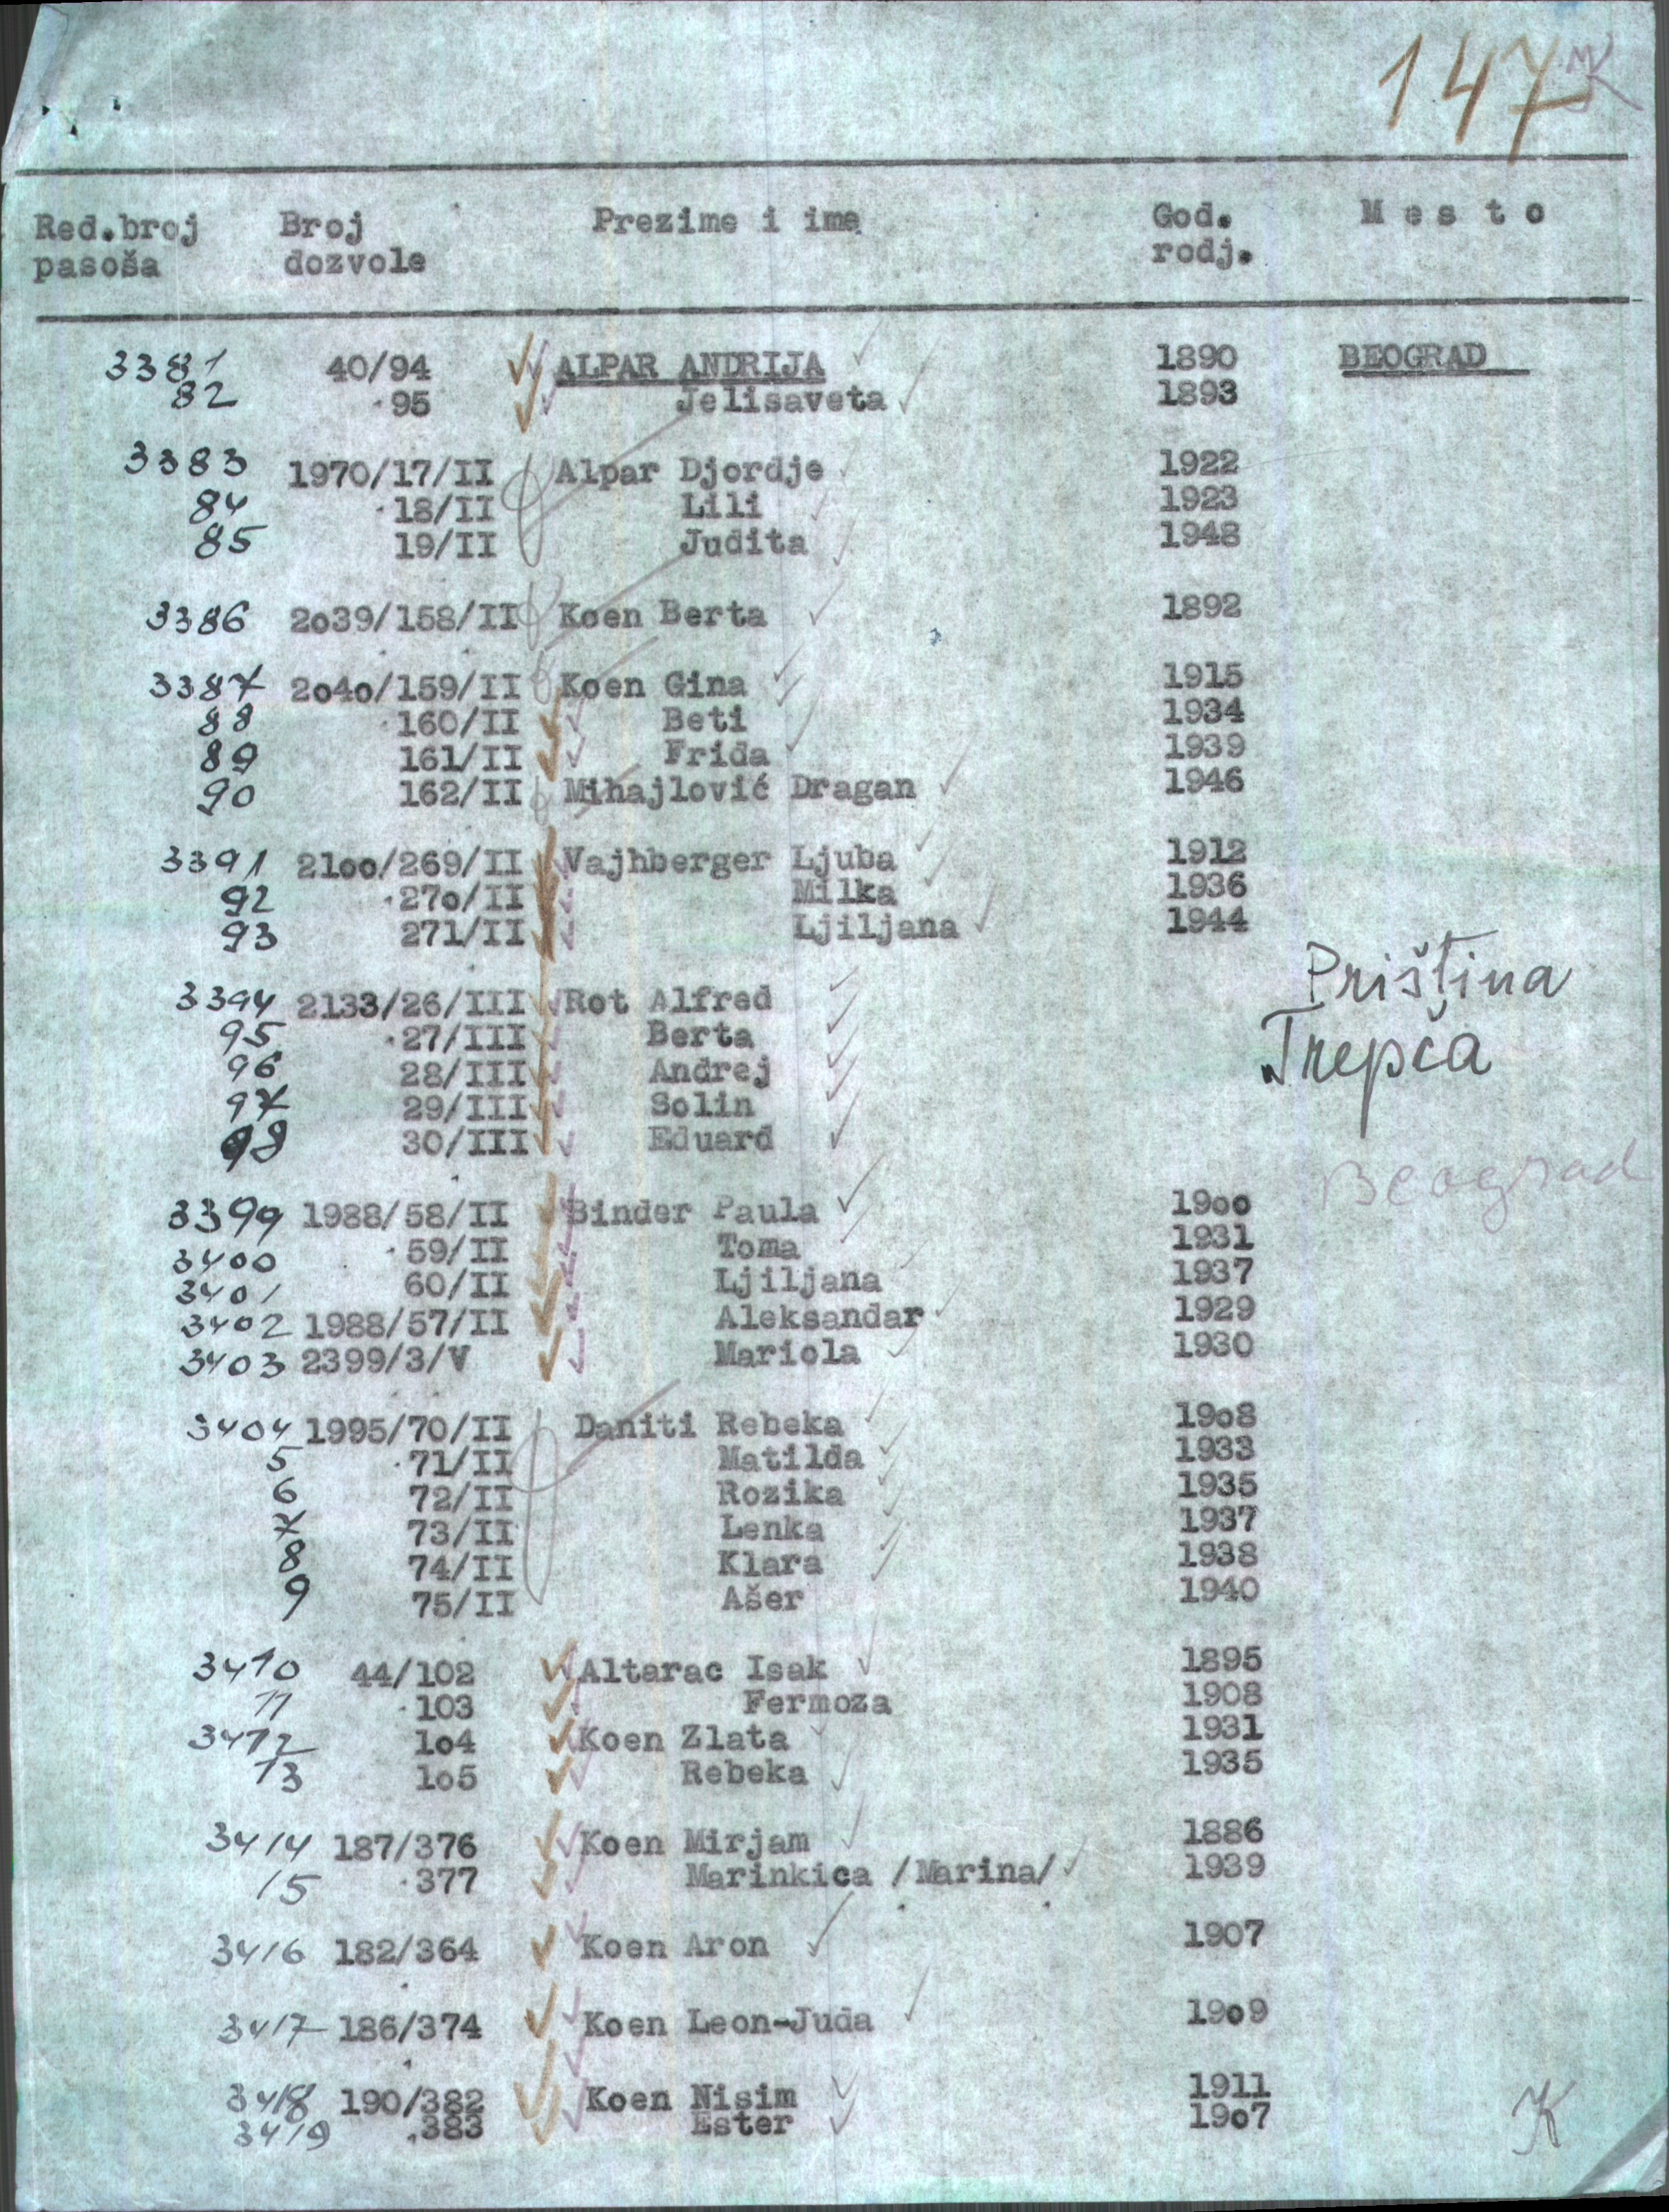 147
K
Red.broj Broj Prezime i ime God. M e s t o
pasoša dozvole rodj.
3381 40/94 ALPAR ANDRIJA 1890 BEOGRAD
82 95 Jelisaveta 1893
3383 1970/17/II Alpar Djordje 1922
84 18/II Lili 1923
85 19/II Judita 1948
3386 2o39/158/II Koen Berta 1892
3387 2o4o/159/II Koen Gina 1915
88 160/II Beti 1934
89 161/II Frida 1939
90 162/II Mihajlović Dragan 1946
3391 21oo/269/II Vajhberger Ljuba 1912
92 27o/II Milka 1936
93 271/II Ljiljana 1944
Priština
3394 2133/26/III Rot Alfred
95 27/III Berta Trepča
96 28/III Andrej
97 29/III Solin
98 30/III Eduard
Beograd
3399 1988/58/II Binder Paula 19oo
3400 59/II Toma 1931
3401 60/II Ljiljana 1937
3402 1988/57/II Aleksandar 1929
3403 2399/3/V Mariola 1930
3404 1995/70/II Daniti Rebeka 19o8
5 71/II Matilda 1933
6 72/II Rozika 1935
7 73/II Lenka 1937
8 74/II Klara 1938
9 75/II Ašer 1940
3410 44/102 Altarac Isak 1895
11 103 Fermoza 1908
3412 1o4 Koen Zlata 1931
13 1o5 Rebeka 1935
3414 187/376 Koen Mirjam 1886
15 377 Marinkica /Marina/ 1939
3416 182/364 Koen Aron 1907
3417 186/374 Koen Leon-Juda 19o9
3418 190/382 Koen Nisim 1911
3419 383 Ester 19o7
K